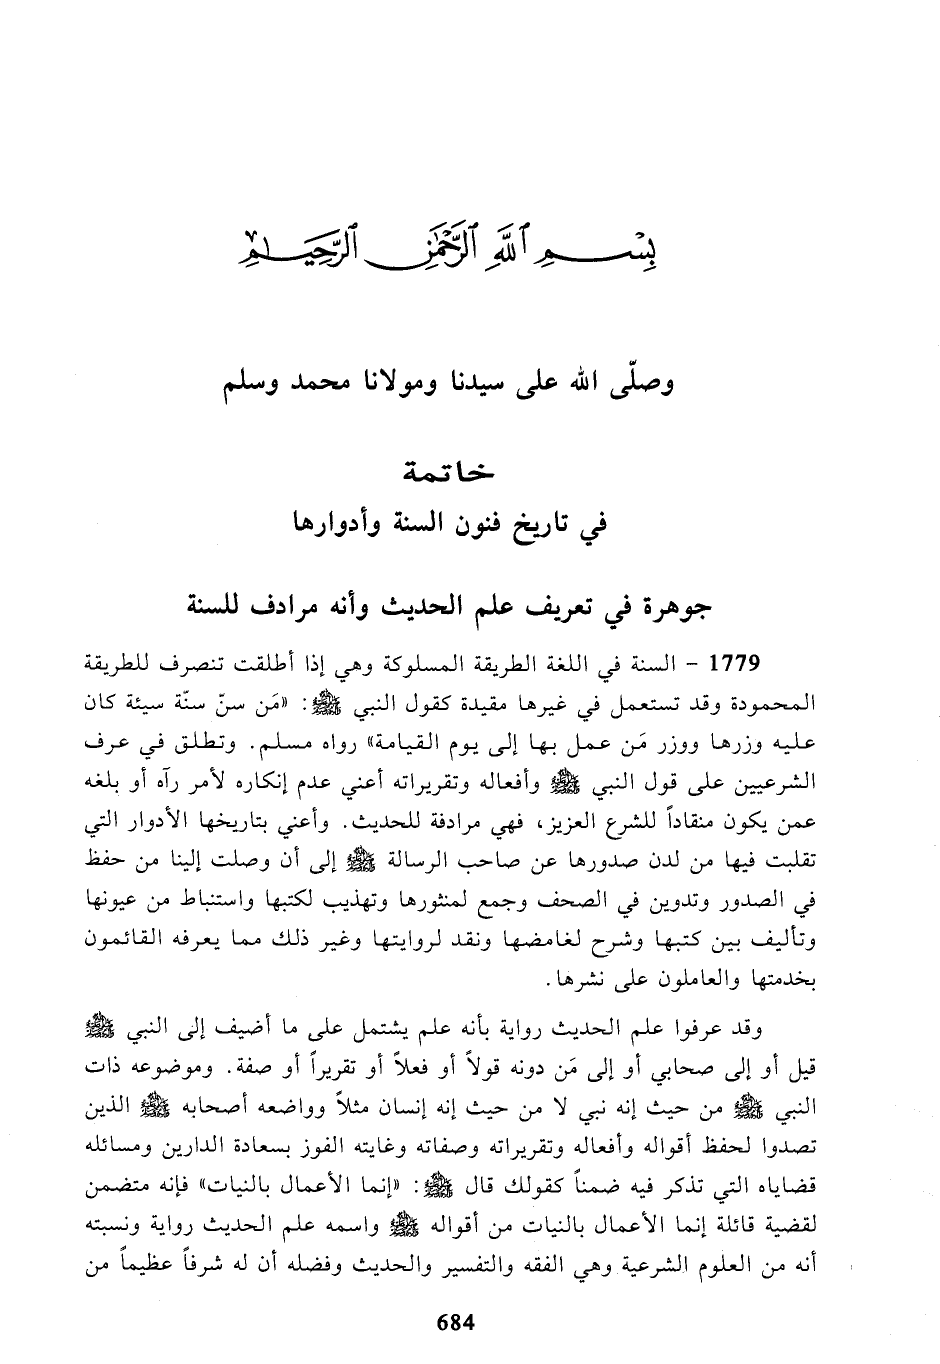 بِسْمِ ٱللَّهِ ٱلرَّحْمَٰنِ ٱلرَّحِيمِ
وصلّى الله على سيدنا ومولانا محمد وسلم
خاتمة
في تاريخ فنون السنة وأدوارها
جوهرة في تعريف علم الحديث وأنه مرادف للسنة
1779 - السنة في اللغة الطريقة المسلوكة وهي إذا أطلقت تنصرف للطريقة
المحمودة وقد تستعمل في غيرها مقيدة كقول النبي ﷺ: «مَن سنّ سنّة سيئة كان
عليه وزرها ووزر مَن عمل بها إلى يوم القيامة» رواه مسلم. وتطلق في عرف
الشرعيين على قول النبي ﷺ وأفعاله وتقريراته أعني عدم إنكاره لأمر رآه أو بلغه
عمن يكون منقاداً للشرع العزيز، فهي مرادفة للحديث. وأعني بتاريخها الأدوار التي
تقلبت فيها من لدن صدورها عن صاحب الرسالة ﷺ إلى أن وصلت إلينا من حفظ
في الصدور وتدوين في الصحف وجمع لمنثورها وتهذيب لكتبها واستنباط من عيونها
وتأليف بين كتبها وشرح لغامضها ونقد لروايتها وغير ذلك مما يعرفه القائمون
بخدمتها والعاملون على نشرها.
وقد عرفوا علم الحديث رواية بأنه علم يشتمل على ما أضيف إلى النبي ﷺ
قيل أو إلى صحابي أو إلى مَن دونه قولاً أو فعلاً أو تقريراً أو صفة. وموضوعه ذات
النبي ﷺ من حيث إنه نبي لا من حيث إنه إنسان مثلاً وواضعه أصحابه ﷺ الذين
تصدوا لحفظ أقواله وأفعاله وتقريراته وصفاته وغايته الفوز بسعادة الدارين ومسائله
قضاياه التي تذكر فيه ضمناً كقولك قال ﷺ: «إنما الأعمال بالنيات» فإنه متضمن
لقضية قائلة إنما الأعمال بالنيات من أقواله ﷺ واسمه علم الحديث رواية ونسبته
أنه من العلوم الشرعية وهي الفقه والتفسير والحديث وفضله أن له شرفاً عظيماً من
684